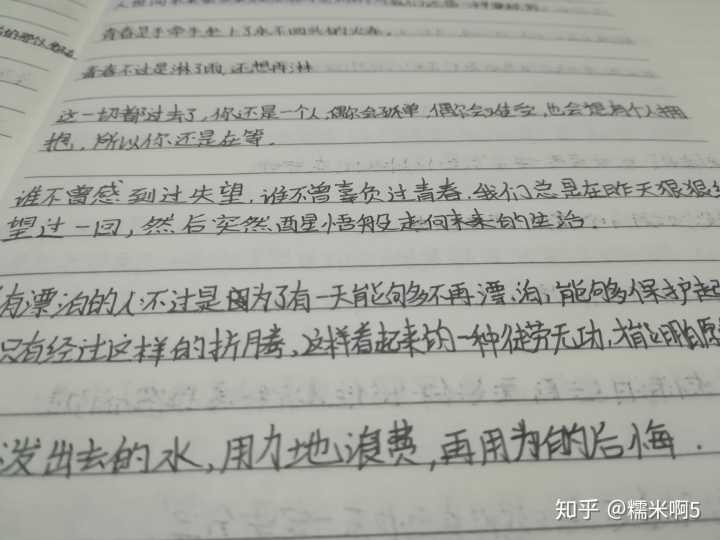 青春是手牵手坐上了永不回头的火车.
青春不过是淋了雨,还想再淋
这一切都过去了,你还是一个人,偶尔会孤单,偶尔会难受,也会想有个人拥
抱,所以你还是在等.
谁不曾感到过失望,谁不曾辜负过青春.我们总是在昨天狠狠
望过一回,然后突然醒悟般走向未来的生活.
有漂泊的人,不过是因为了有一天能够不再漂泊,能够保护起
只有经过这样的折腾,这样看起来的一种徒劳无功,才能明
泼出去的水,用力地浪费,再用力的后悔.
知乎 @糯米啊5